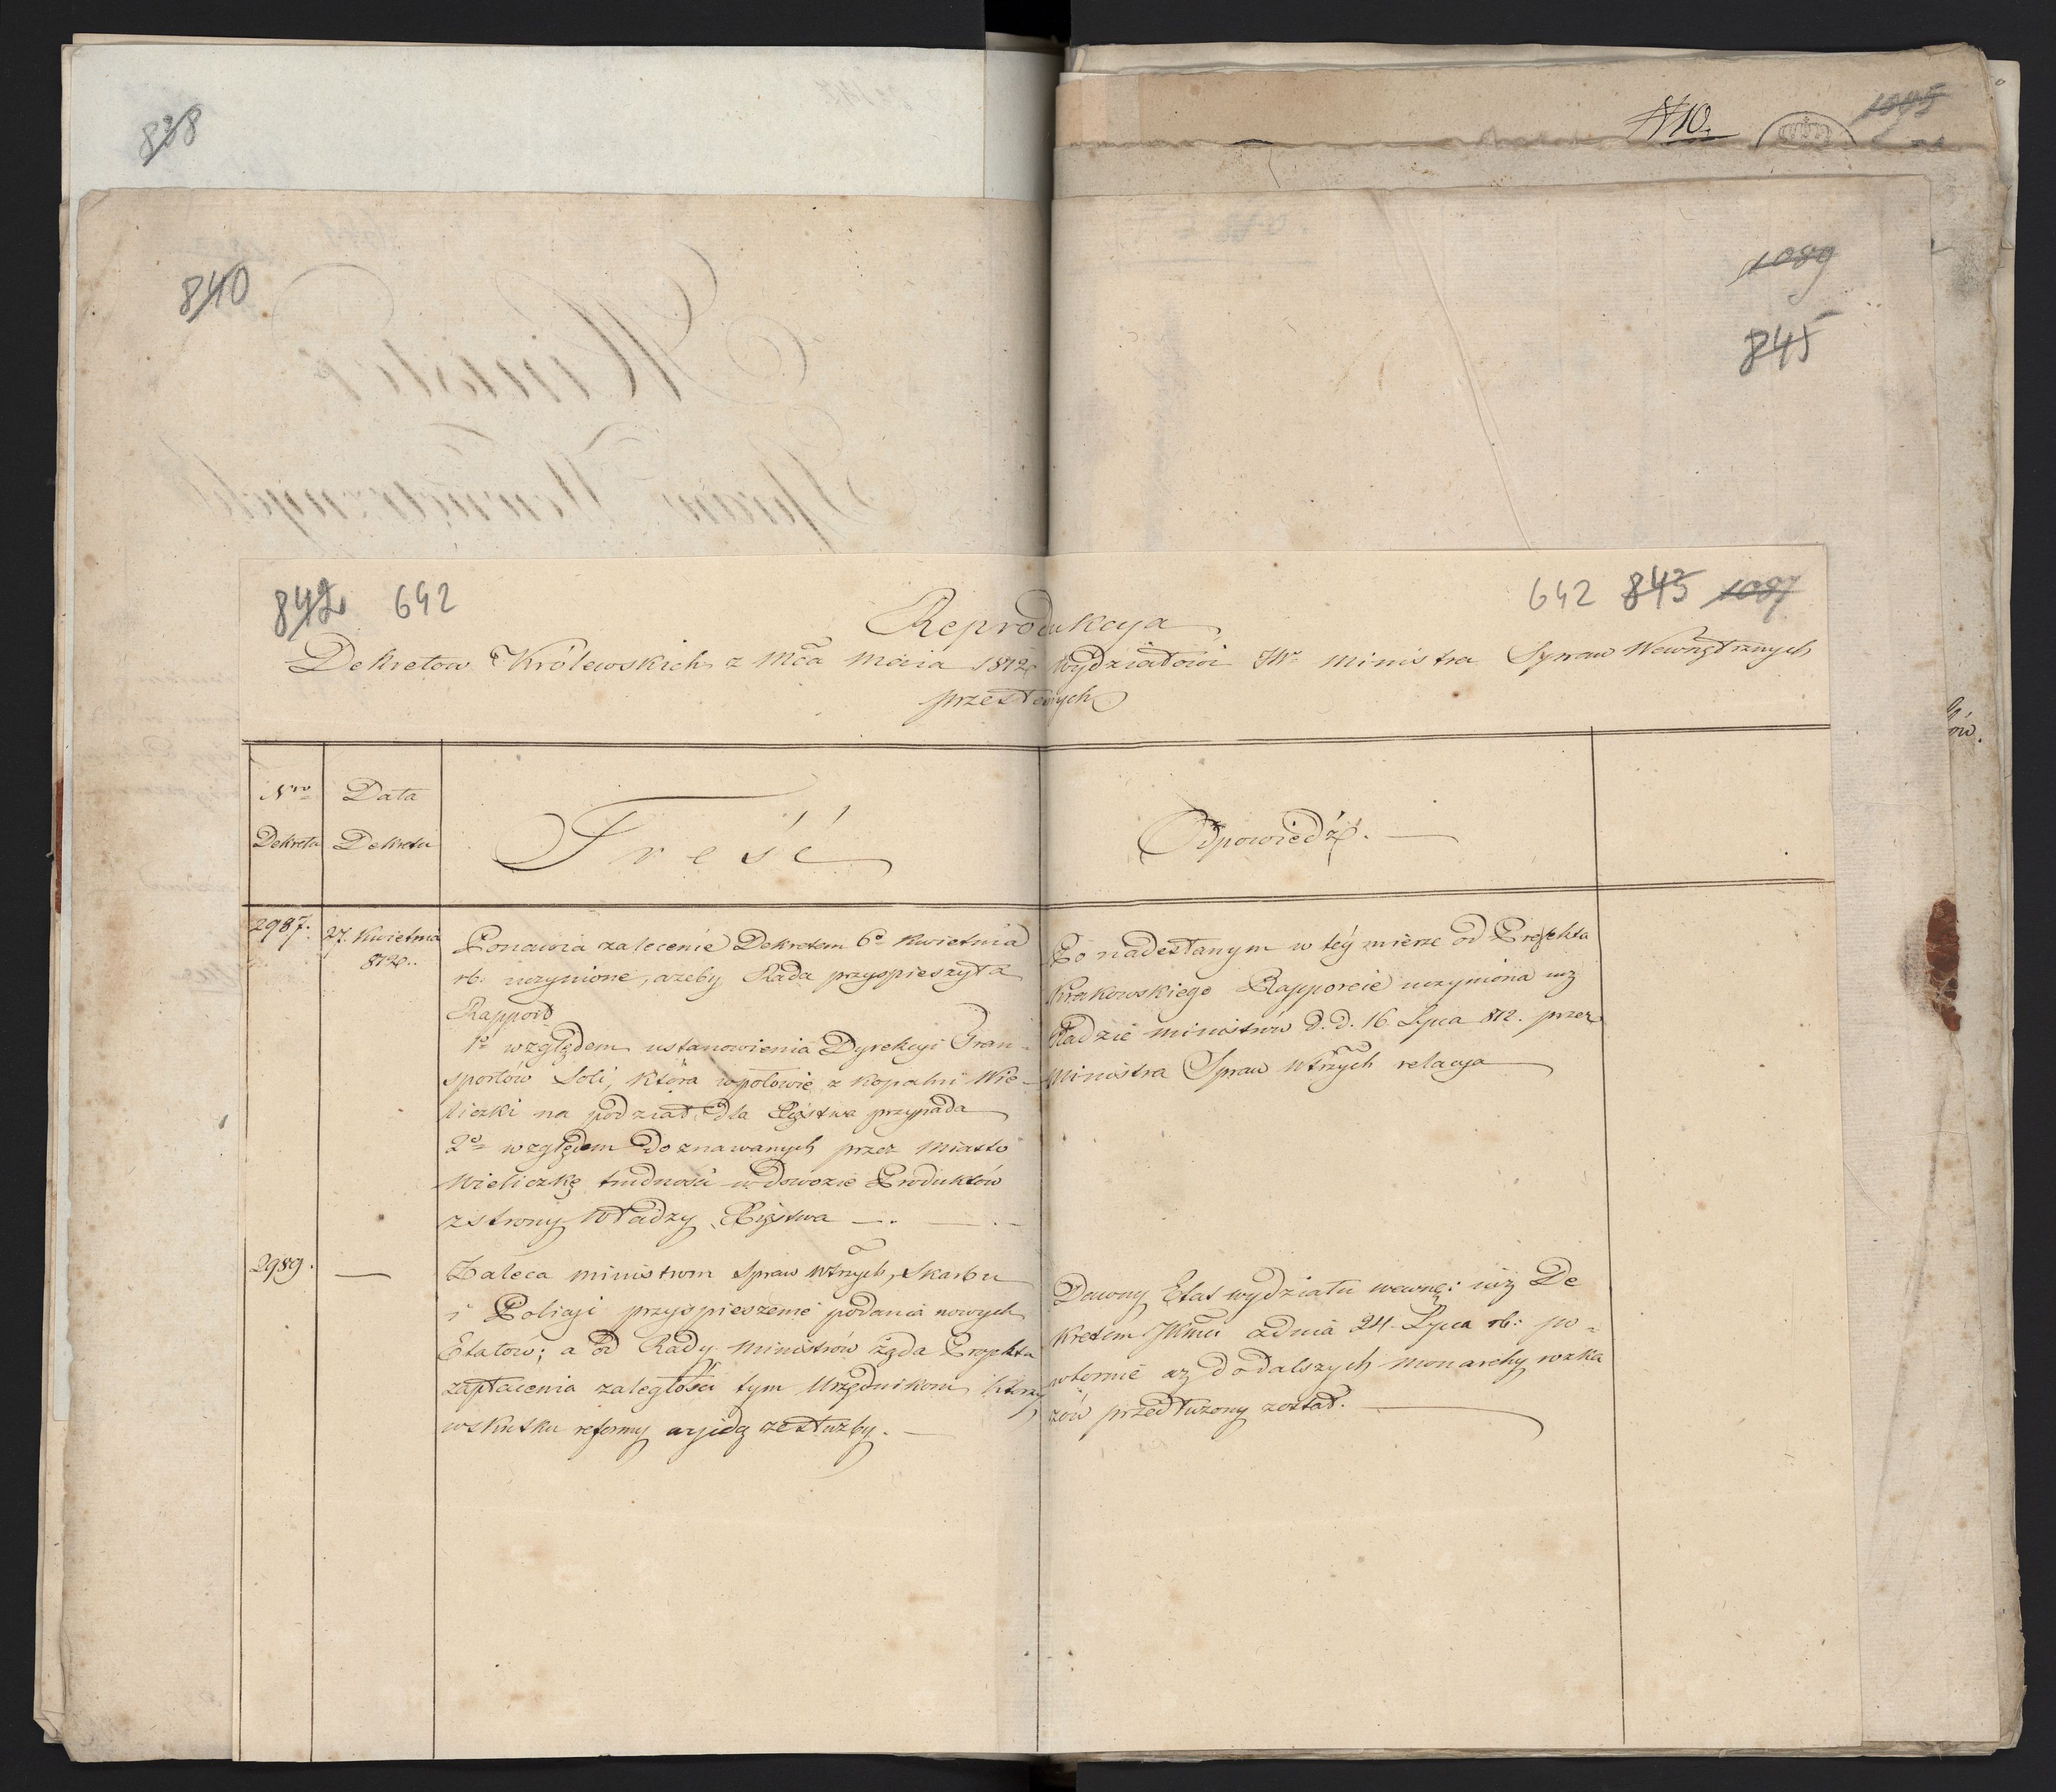 838
N 10.
1085
840
1089
845
842 642
642 843 1087
Reprodukcya
Dekretow Królewskich z Mča Maia 1812 Wydziałowi JW. Ministra Spraw Wewnętrznych
przesłanych
Nro Dekretu
Data Dekretu
Treść
Odpowiedź.
2987.
27. Kwietnia
812.
Ponawia zalecenie Dekretem 6o Kwietnia
rb. uczynione, azeby Rada przyspieszyła
Rapport
1o względem ustanowienia Dyrekcyi Tran-
sportów Soli, która wpołowie z kopalni Wie-
liczki na podział dla Xięstwa przypada
2o względem doznawanych przez Miasto
Wieliczkę trudności w dowozie Produktów
z strony Władzy Xięstwa
Po nadesłanym w téy mierze od Prefekta
Krakowskiego Rapporcie uczyniona iuż
Radzie Ministrów d. d. 16. Lipca 812. przez
Ministra Spraw Wtrzych relacya
2989.
Zaleca Ministrom Spraw Wtrzych, Skarbu
i Policyi przyspieszenie podania nowych
Etatów; a od Rady Ministrów żąda Proiektu
zapłacenia zaległości tym Urzędnikom, którzy
wskutku reformy wyidą ze służby.
Dawny Etat wydziału wewnę: iuż De
kretem JKMci z dnia 24. Lipca rb: po-
wtornie aż do dalszych Monarchy rozka
zów przedłużony został.
ów.